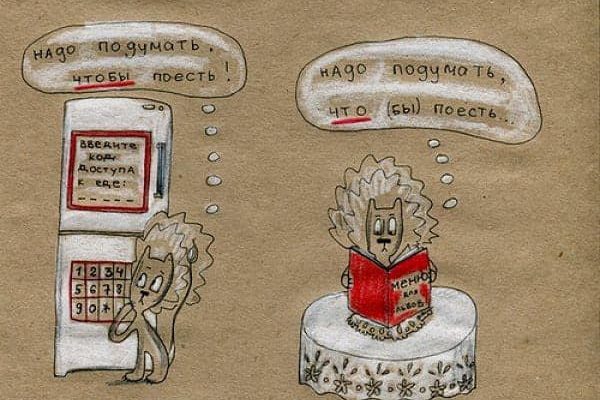 надо подумать,
чтобы поесть!
введите
код
доступа
к еде:
_ _ _ _ _
1 2 3 4
5 6 7 8
9 0 *
надо подумать,
что (бы) поесть...
меню
для
львов